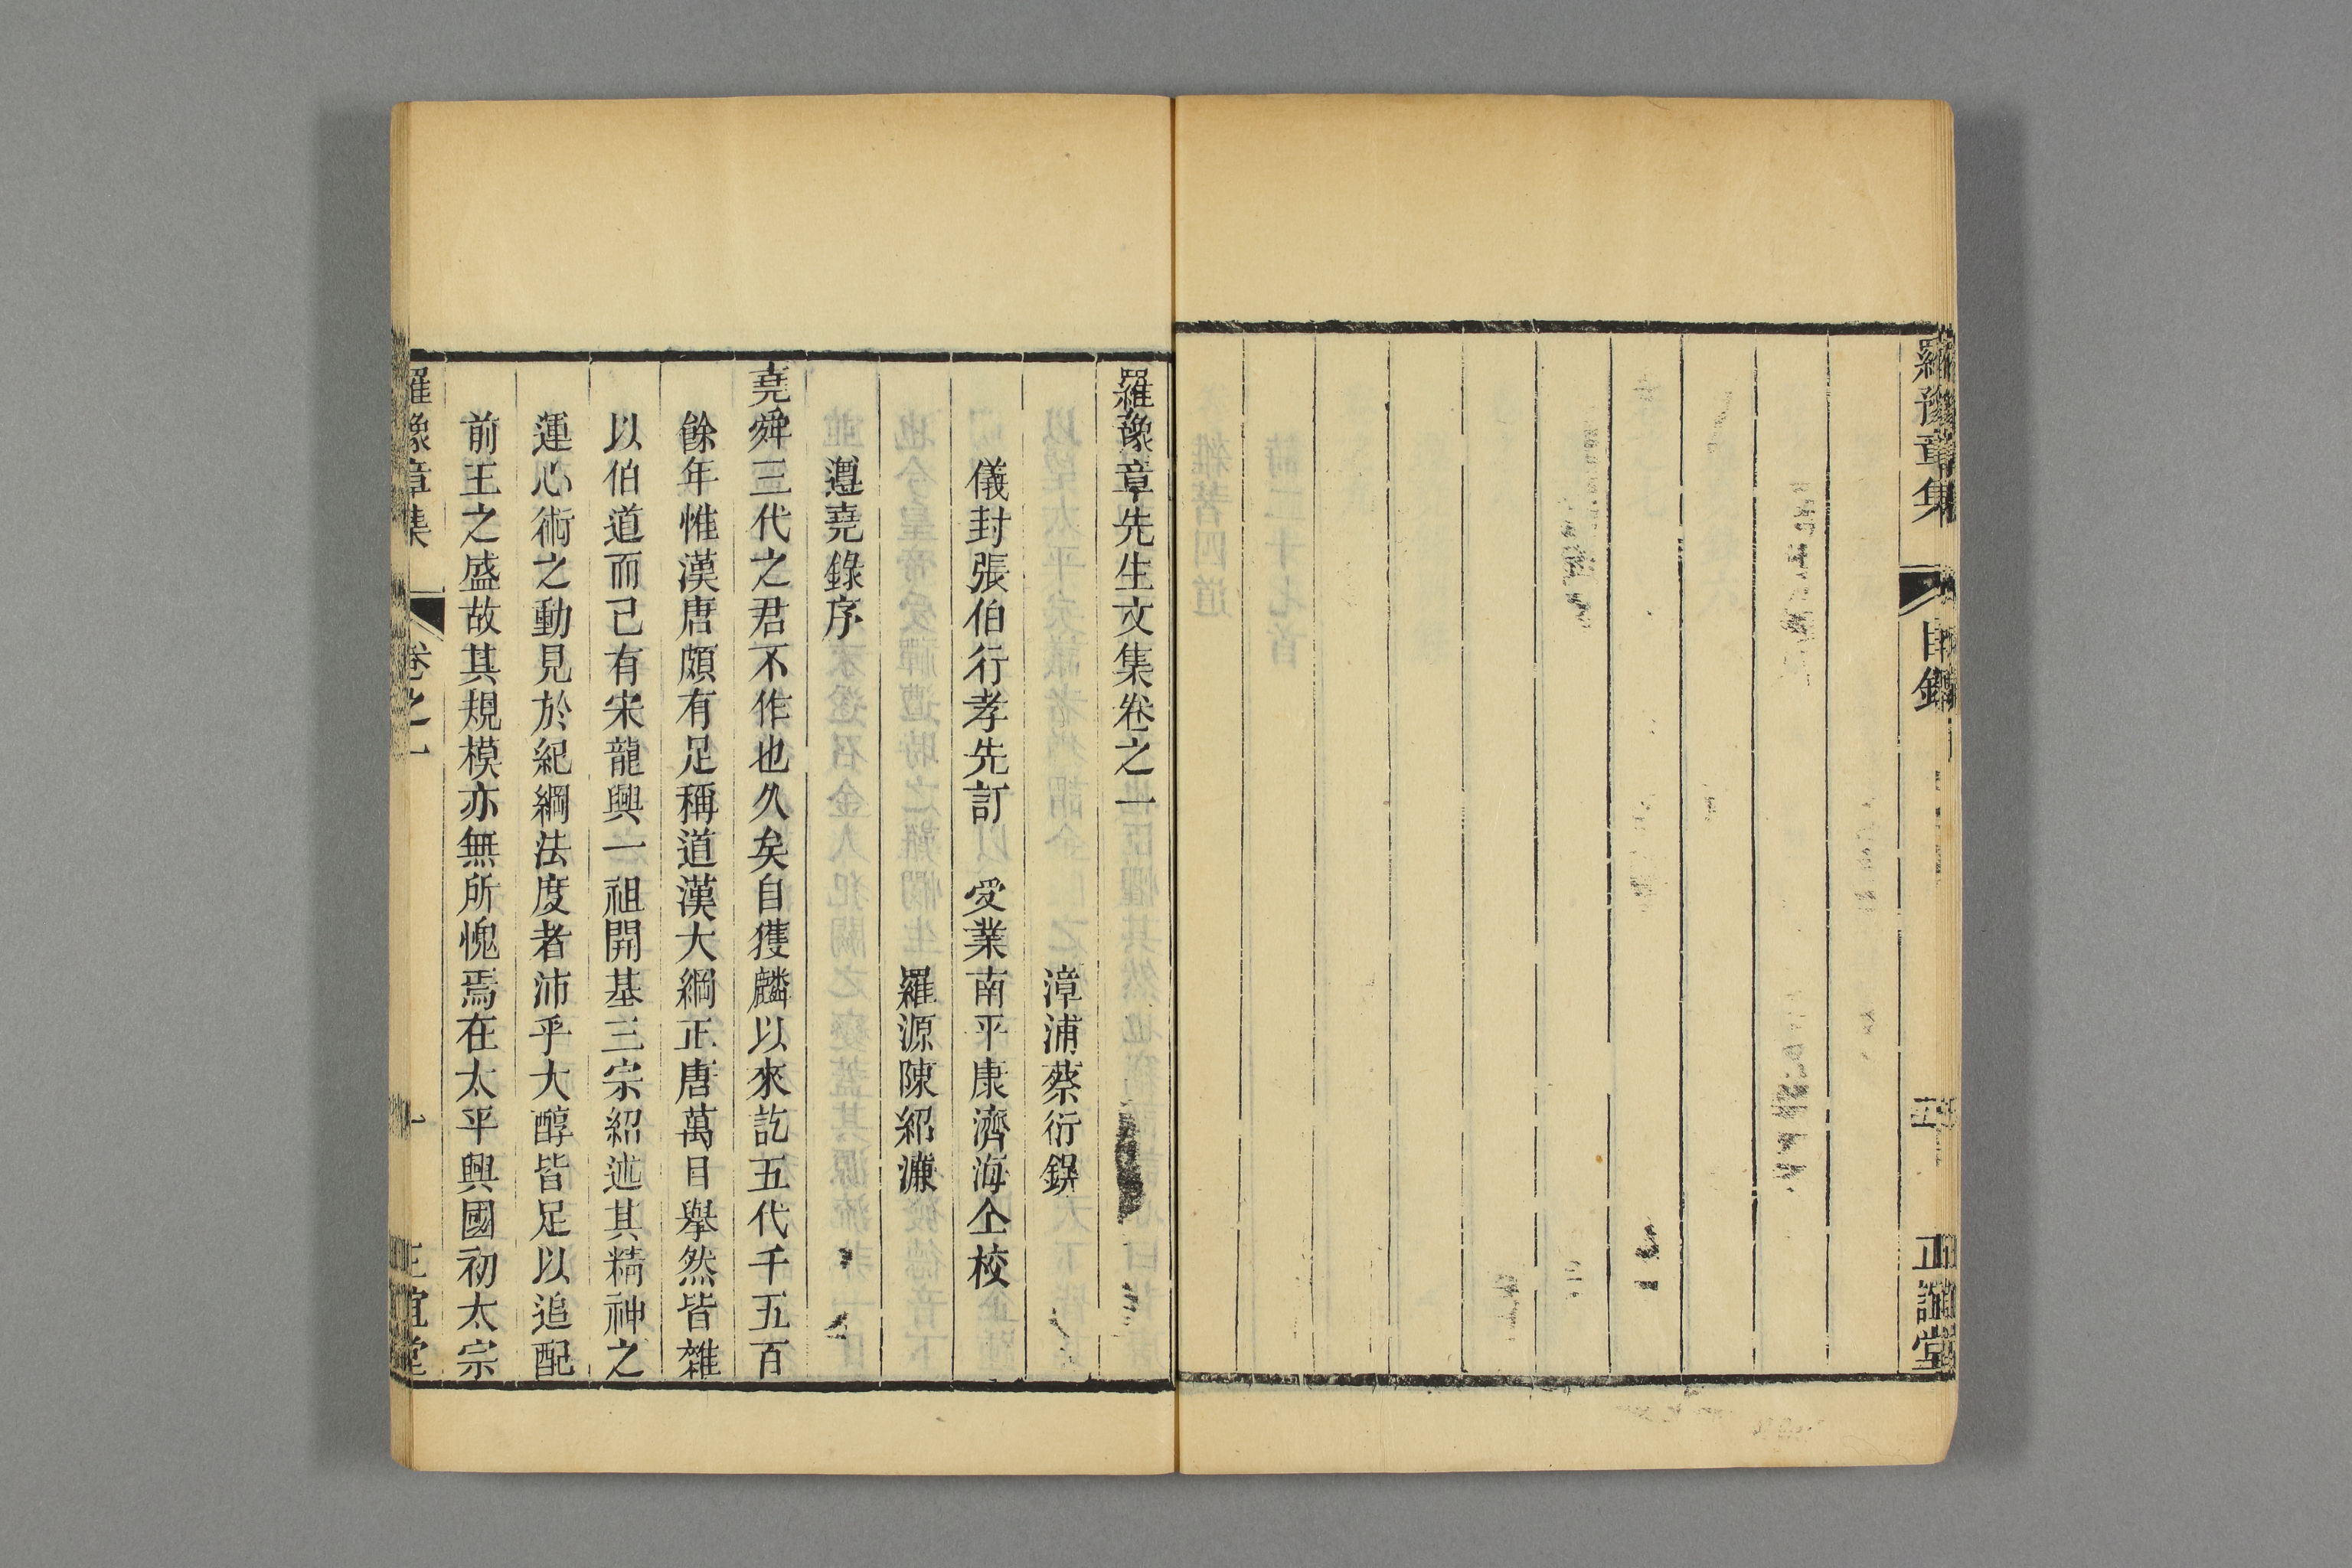 羅豫章集
目錄
五
正誼堂
羅豫章先生文集卷之一
漳浦蔡衍鎤
儀封張伯行孝先訂　受業南平康濟海仝校
羅源陳紹濂
遵堯錄序
堯舜三代之君不作也久矣自獲麟以來訖五代千五百
餘年惟漢唐頗有足稱道漢大綱正唐萬目舉然皆雜
以伯道而已有宋龍興一祖開基三宗紹述其精神之
運心術之動見於紀綱法度者沛乎大醇皆足以追配
前王之盛故其規模亦無所愧焉在太平興國初太宗
羅豫章集
卷之一
一
正誼堂